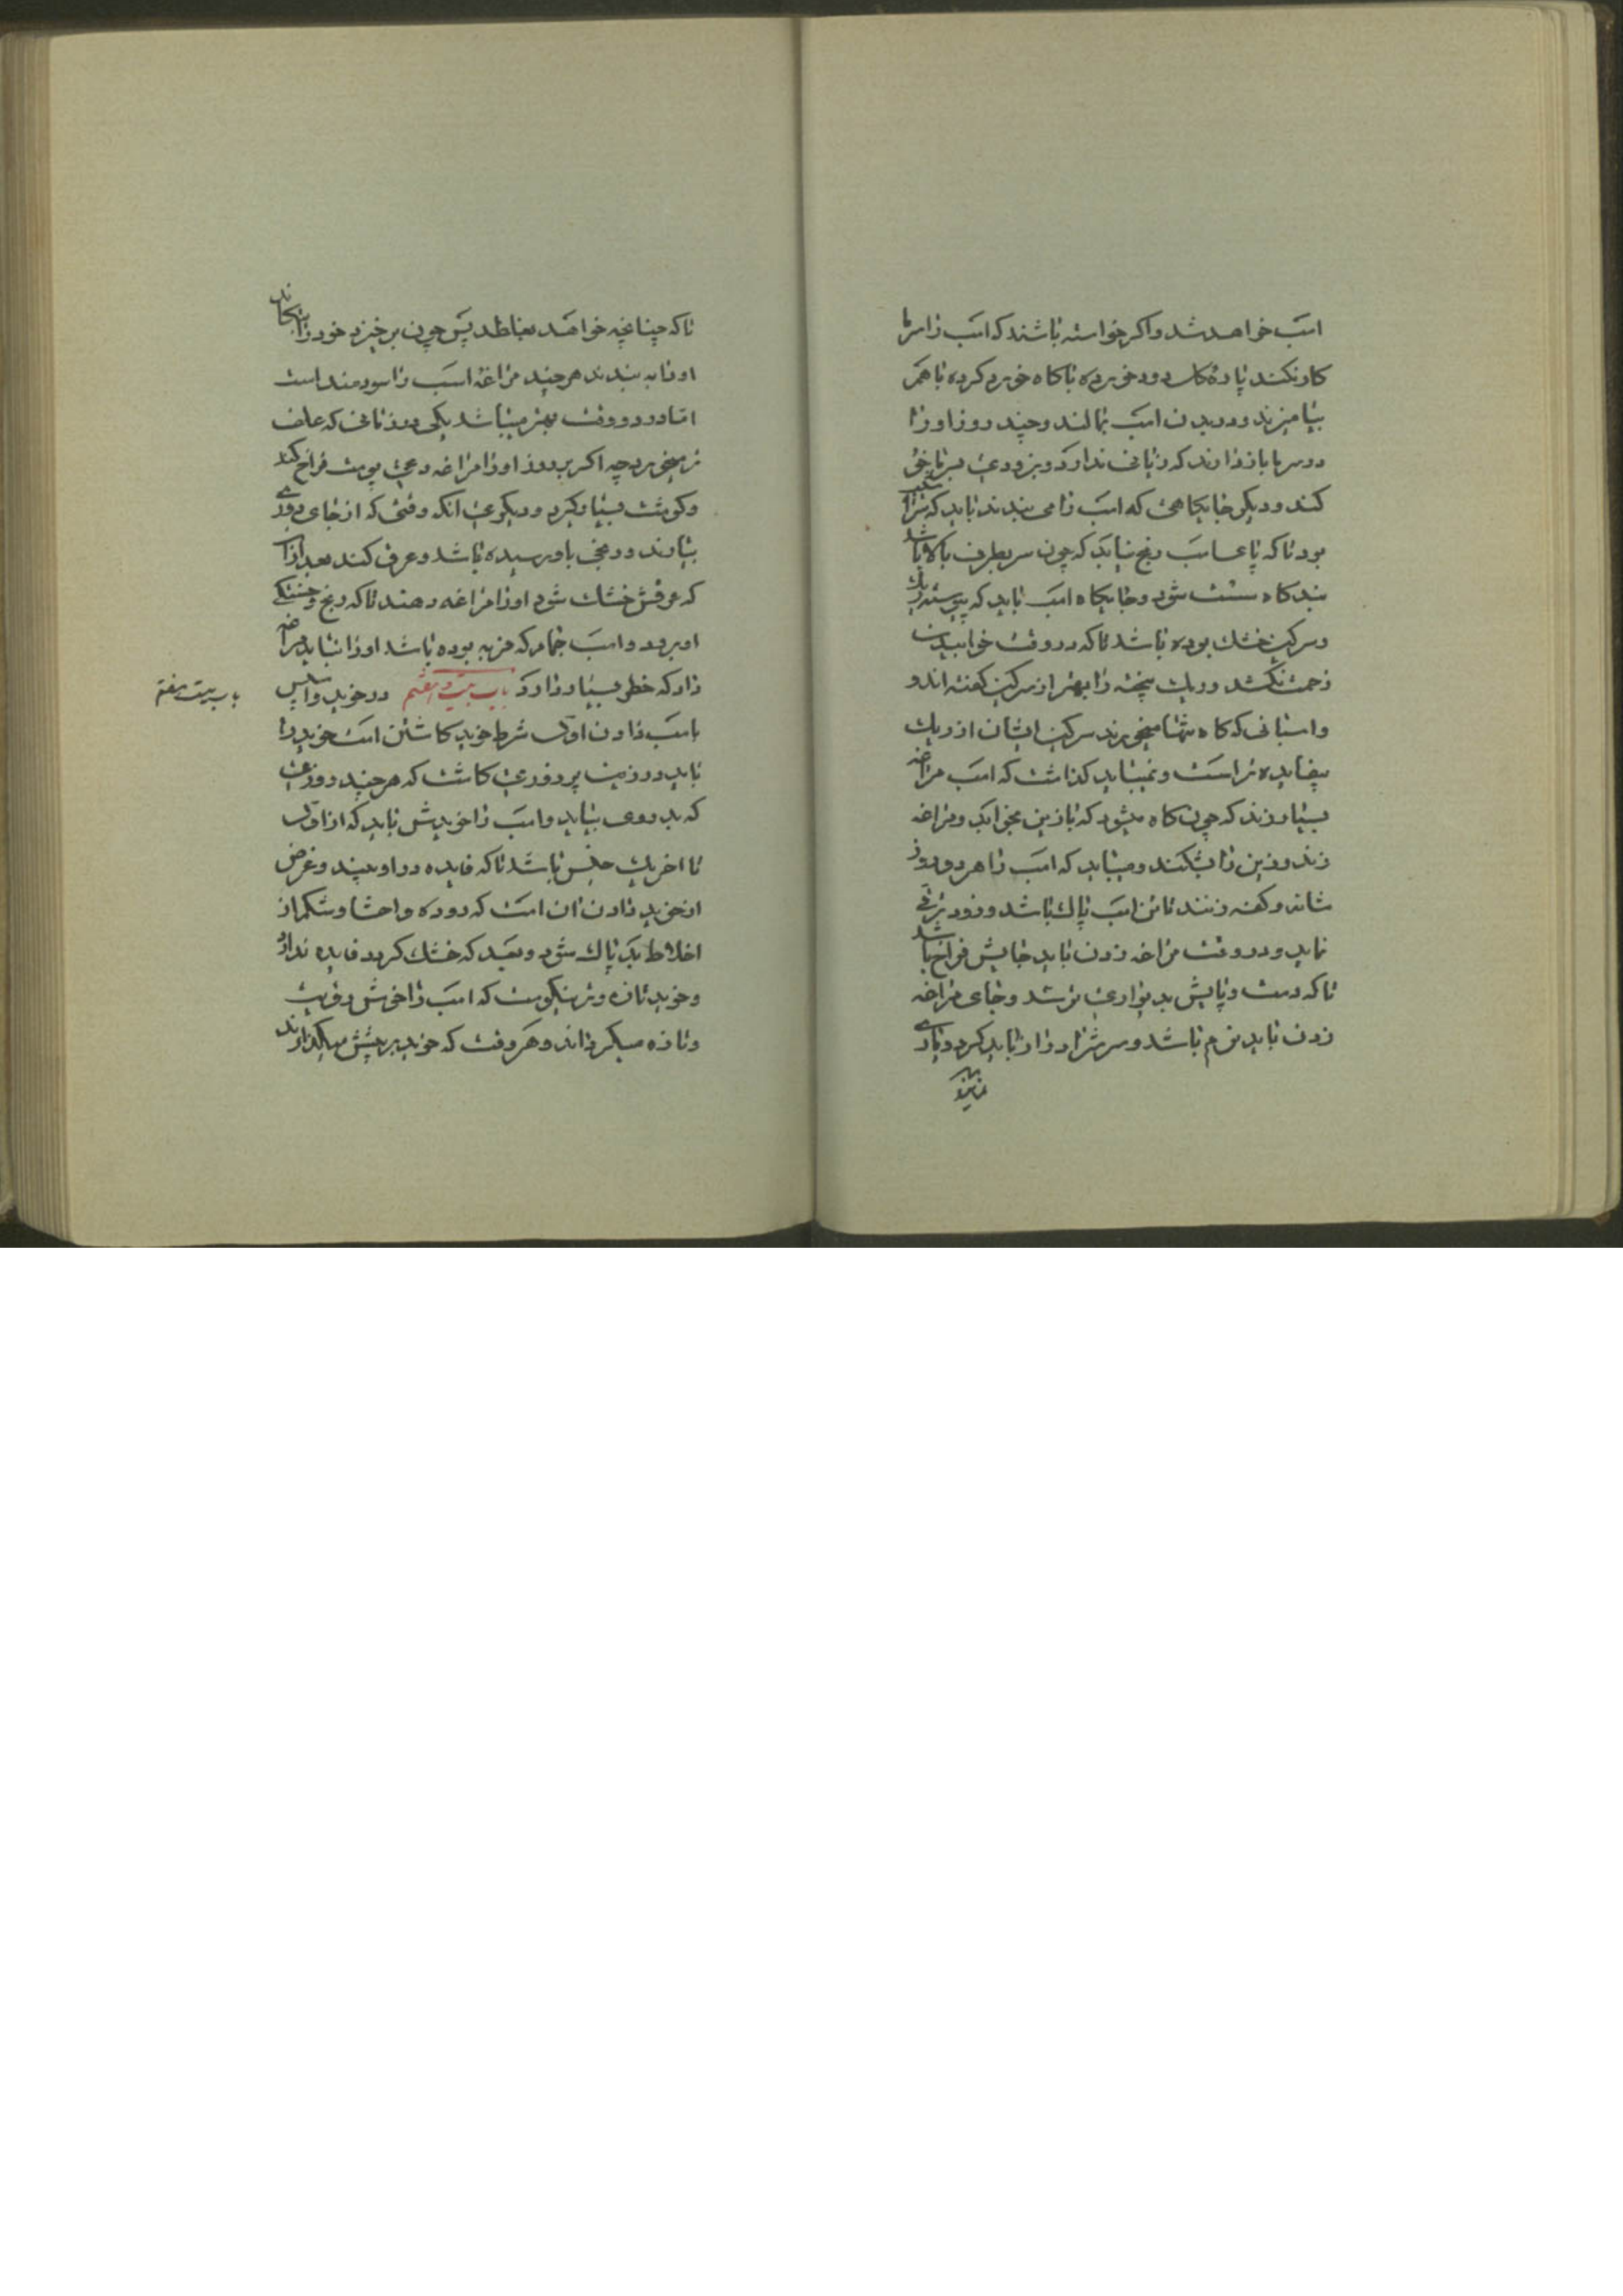 اسب خواهد شد و اکر خواسته باشند که اسب را سرما
کار نکند پاره کاس دود خورده با کاه خورد کرده باهم
بیامیزند و در بدن اسب بمالند و چند روز او را
در سرما بازدارند که زیانی ندارد و بزودی بسرما خو
کند و دیکر جایکاهی که اسب را می بندند باید که سرازیر
بود تا که پا عاسب رنج نیابد که چون سر بطرف بالا باشد
بندکاه سست شود و جایکاه اسب باید که پیوسته ریک
و سرکین خشک بوده باشد تا که در وقت خوابیدن
زحمت نکشد و ریک پخته را بهتر از سرکین کفته اند و
و اسبانی که کاه تنها میخورند سرکین ایشان از ریک
بیفایده تر است و نمیباید کذاشت که اسب مراغه
بسیار زند که چون کاه میشود که با زین بخوابد و مراغه
زند و زین را بشکند و میباید که اسب را هر دو روز
شانه و کهنه زنند تا تن اسب پاک باشد و زود ترقی
نماید و در وقت مراغه زدن باید جایش فراخ باشد
تا که دست و پایش بدیواری نرسد و جای مراغه
زدن باید نرم باشد و سر شرا دراز باید کرد و یاری
تا که چنانچه خواهد بغلطد پس چون برخیزد خود را بتکاند
او را به بندند هر چند مراغه اسب را سودمند است
اما در دو وقت بهتر میباشد یکی در زمانی که علف
تر میخورد چه اکر هر روز او را مراغه دهی پوست فراخ کند
و کوشت بسیار کیرد و دیکری آنکه وقتی که از جای دوری
بیارند و رنجی باو رسیده باشد و عرق کند بعد از آن
که عرقش خشک شود او را مراغه دهند تا که رنج و خستکی
او برود و اسب خام که فربه بوده باشد او را نباید مراغه
داد که خطر بسیار دارد باب بیست و هفتم در خوید و اسپس
باسب دادن اول شرط خوید کاشتن است خوید را
باید در زمین پر زوری کاشت که هر چند زوزی
که بدروی بیاید و اسب را خویدش باید که از اول
تا آخر یک جنس باشد تا که فایده در او بیند و غرض
از خوید دادن آن است که روده و احشا و شکم از
اخلاط بد پاک شود و بعید که خشک کردد فایده ندارد
و خوید تازه و تر نیکوست که اسب را خوش و فربه
و تازه میکرداند و هر وقت که خوید بر پیشش میکذارند
باب بیست هفتم